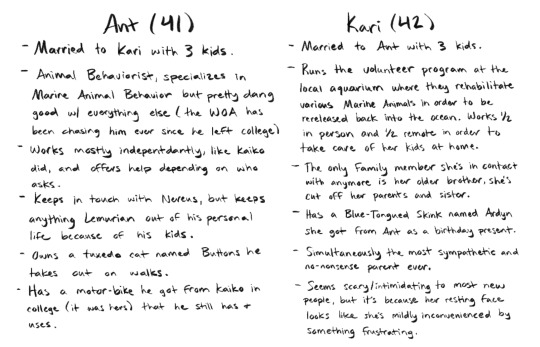 Ant (41)
- Married to Kari with 3 kids.
- Animal Behaviorist, specializes in
Marine Animal Behavior but pretty dang
good w/ everything else (the WOA has
been chasing him ever since he left college)
- Works mostly indepentdantly, like Kaiko
did, and offers help depending on who
asks.
- Keeps in touch with Nereus, but keeps
anything Lemurian out of his personal
life because of his kids.
- Owns a tuxedo cat named Buttons he
takes out on walks.
- Has a motor-bike he got from Kaiko in
college (it was hers) that he still has +
uses.
Kari (42)
- Married to Ant with 3 kids.
- Runs the volunteer program at the
local aquarium where they rehabilitate
various Marine Animals in order to be
rereleased back into the ocean. Works 1/2
in person and 1/2 remote in order to
take care of her kids at home.
- The only Family member she's in contact
with anymore is her older brother, she's
cut off her parents and sister.
- Has a Blue-Tongued Skink named Ardyn
she got from Ant as a birthday present.
- Simultaneously the most sympathetic and
no-nonsense parent ever.
- Seems scary/intimidating to most new
people, but it's because her resting face
looks like she's mildly inconvenienced by
something frustrating.